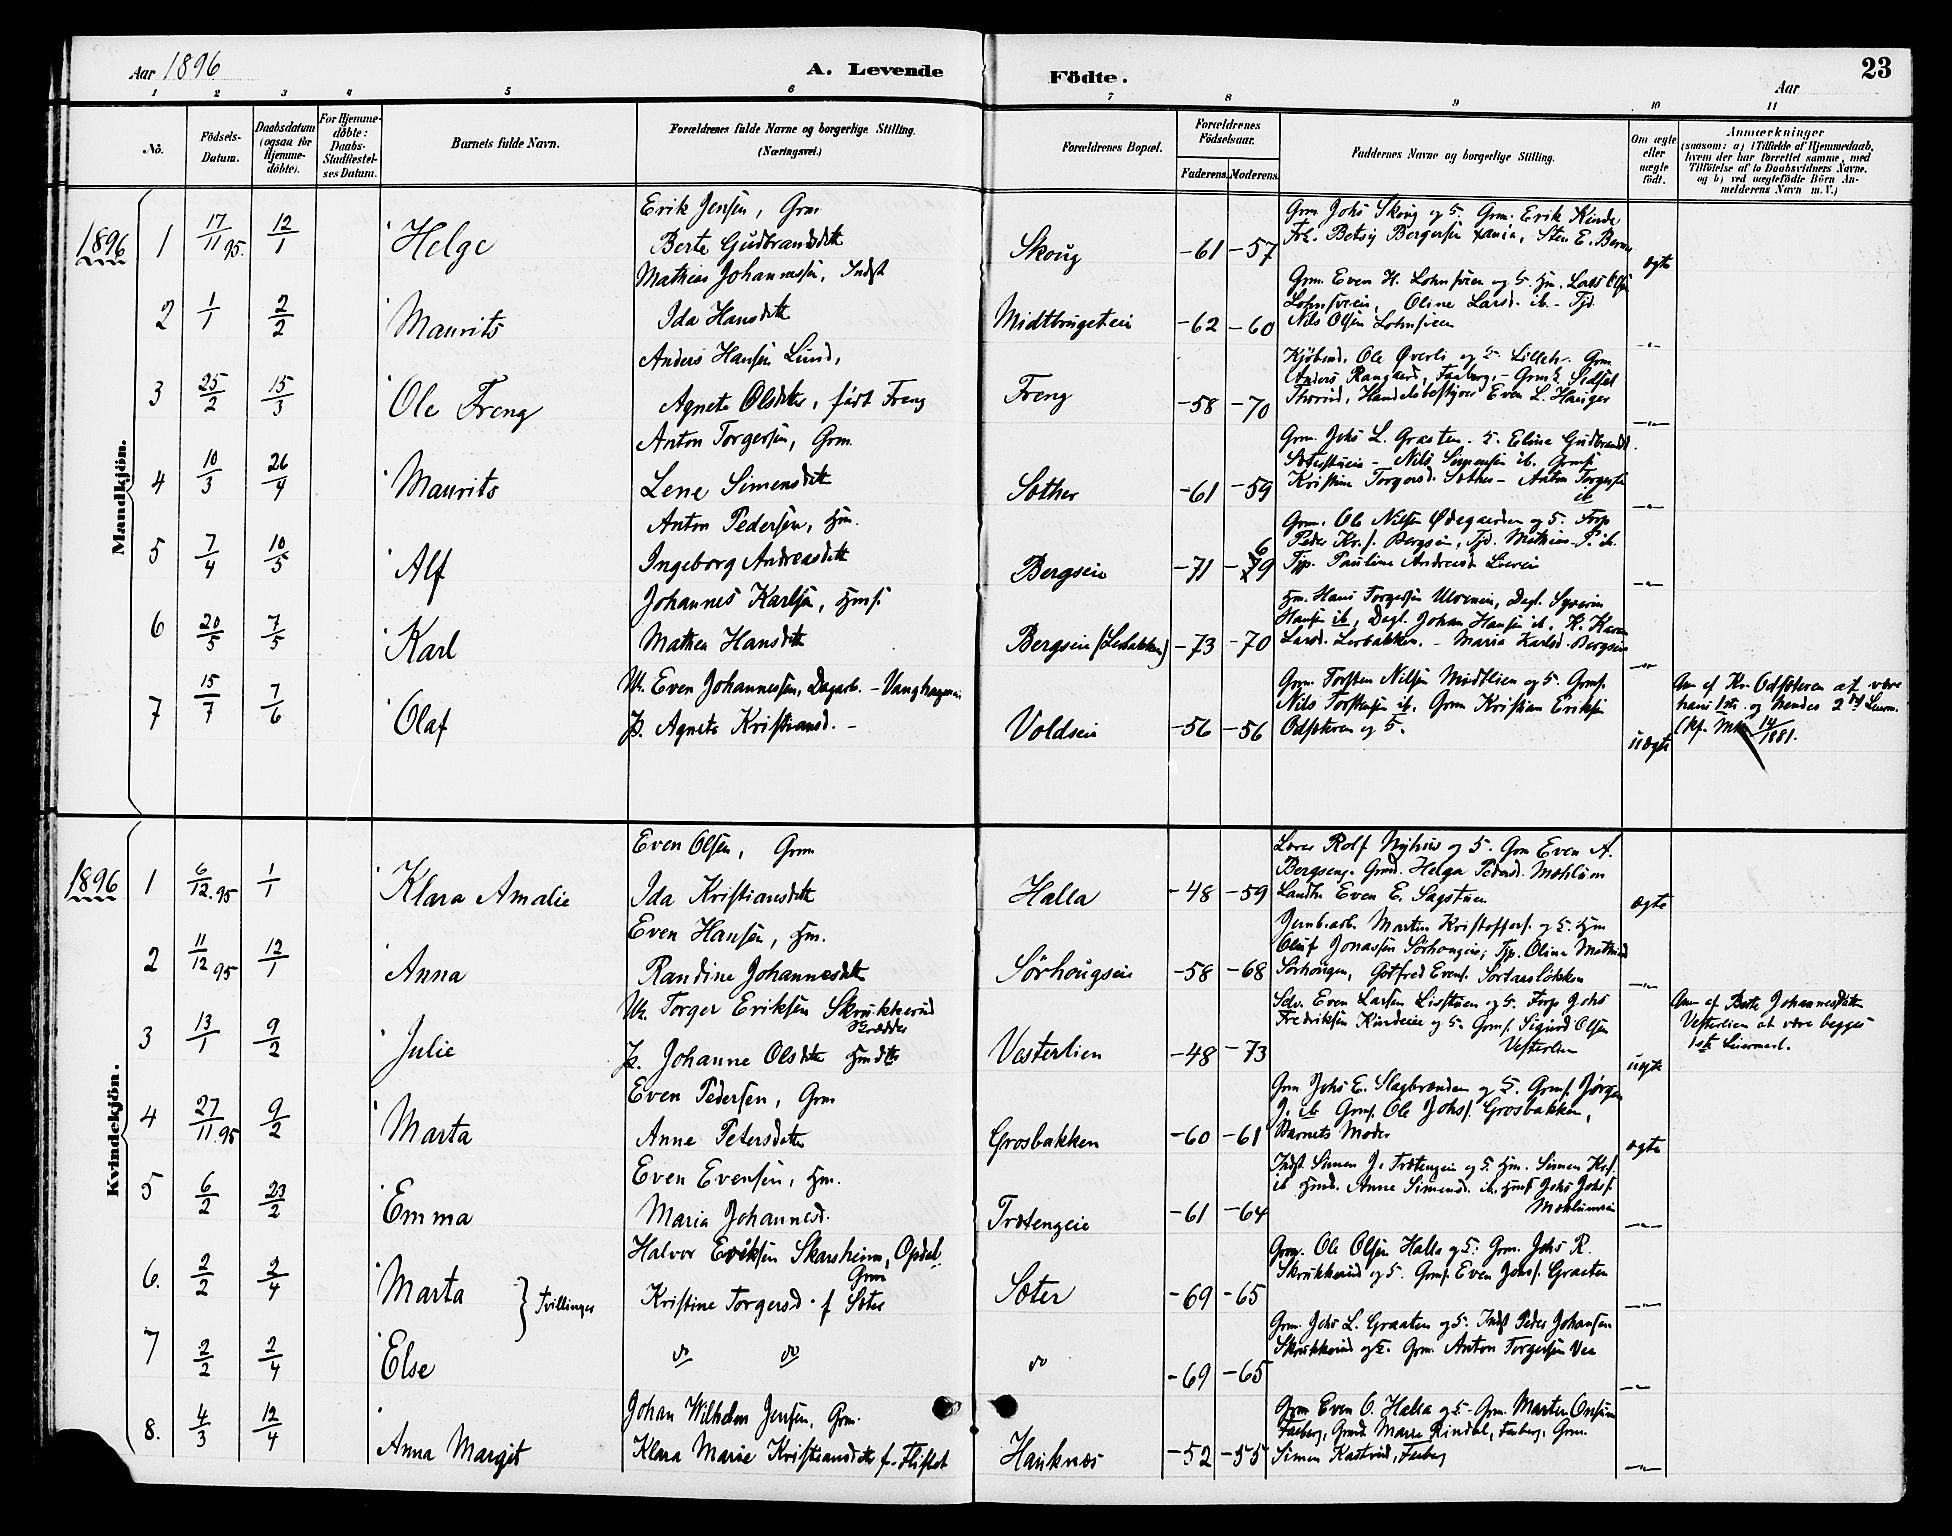 Aar 1896
A. Levende
Födte.
Aar
23
1 2 3 4 5 6 7 8 9 10 11
No.
Födsels-
Datum.
Daabsdatum
(ogsaa for
Hjemme-
döbte).
For Hjemme-
döbte:
Daabs-
Stadfæstel-
ses Datum.
Barnets fulde Navn.
Forældrenes fulde Navne og borgerlige Stilling.
(Næringsvei.)
Forældrenes Bopæl.
Forældrenes
Födselsaar.
Faderens. Moderens.
Faddernes Navne og borgerlige Stilling.
Om ægte
eller
uægte
födt.
Anmærkninger
(saasom: a) i Tilfælde af Hjemmedaab,
hvem der har forrettet samme, med
Tilföielse af to Daabsvidners Navne.
og b) ved uægtefödte Börn An-
melderens Navn m. V.)
Mandkjön.
1896
1 17/11 95. 12/1 Helge
Erik Jensen, Grm
Berte Gudbrandsdtt
Skoug -61 -57
Grm Johs Skoug og 5. Grm. Erik Kinde
Frk. Betsy Bergersen Xania, Sten E. Berm
ægte
2 1/1 2/2 Maurits
Mathias Johannesen, Indst
Ida Hansdtt
Midtbrugeteie -62 -60
Grm. Even H. Lohnsveen og 5. Hm. Lars Olsn
Lohnsveein, Oline Larsd. ib. - Tjd.
Nils Olsen Lohnsveen
-"-
3 25/2 15/3 Ole Freng
Anders Hansen Lund,
Agnete Olsdtter, født Freng
Freng -58 -70
Kjöbmd. Ole Överli og 5. Lilleh. Grm
Anders Rangaard, Faaberg. - Grmk. Sidsel
Thorud, Handelsbestyrer Even L. Hauger
-"-
4 10/3 26/4 Maurits
Anton Torgersen, Grm.
Lene Simensdtt
Sæther -61 -59
Grm. Johs L. Graaten. 5. Eline Gudbrandd.
Sæterstuen - Nils Simensen ib. Grms
Kristine Torgersd. Sæther - Anton Torgersen
ib
-"-
5 7/4 10/5 Alf
Anton Pedersen, Hm.
Ingeborg Andreasdtt
Bergseie -71 -69
Grm. Ole Nilsen Ødegaarden og 5. Forp
Peder Kr.s. Bergseie, Tjd. Mathias P. ib.
Tjp. Pauline Andreasd. Lieeie
-"-
6 20/5 7/5 Karl
Johannes Karlsen, Hms.
Mathea Hansdtt
Bergseie (Lerbakken) -73 -70
Hm. Hans Torgersen Ulveneie, Dagl. Syverin
Hansen ib, Dagl. Johan Hansen ib. K. Karen
Larsd. Lerbakken. - Maria Karlsd. Bergseie
-"-
7 15/7 7/6 Olaf
Uk. Even Johannessen, Dagarb. - Vanghageneie
Jp. Agnete Kristiansd. -
Voldseie -56 -56
Grm. Torsten Nilsen Midtlien og 5. Grms.
Nils Torstensen ib. Grm Kristian Eriksen
Odsæteren og 5.
uægte
Anm af Kr. Odsæteren at være
hans 1ste og hendes 2det Leierm.
14/1881.
Kvindekjön.
1896
1 6/12 95 1/1 Klara Amalie
Even Olsen, Grm
Ida Kristiansdtt
Halla -48 -59
Lærer Rolf Nyhus og 5. Grm Even A.
Bergseng. Grmd. Helga Pedersd. Mæhlum
Landh. Even E. Sagstuen
ægte
2 11/12 95 12/1 Anna
Even Hansen, Hm.
Randine Johannesdtt
Sörhougseie -58 -68
Jernb.arb. Martin Kristoffers. og 5. Hm
Oluf Jonassen Sörhougeie; Tjp. Oline Mathisd
Sörhougen, Gotfred Evens. Sortaaslökken
-"-
3 13/1 9/2 Julie
Uk. Torger Eriksen Skrukkerud
Skrædder
Jp. Johanne Olsdtter Hmdtt
Vesterlien -48 -73
Selv. Even Larsen Lisstuen og 5. Forp Johs
Fredriksen Kindeeie og 5. Grms. Sigurd Olsen
Vesterlien
uægte
Anm af Berte Johannesdatter
Vesterlien at være begges
1ste Leiermaal.
4 27/11 95 9/2 Marta
Even Pedersen, Grm
Anne Petersdatter
Grosbakken -60 -61
Grm Johs E. Slagbrenden og 5. Grms. Jörgen
J. ib Grms. Ole Johs. Grosbakken,
Barnets Moder
ægte
5 6/2 23/2 Emma
Even Evensen, Hm.
Maria Johannesd.
Trætengeie -61 -64
Indst Simen J. Trætengeie og 5. Hm. Simen Kr.s.
ib Hmd. Anne Simensd. ib. Hms Johs Johs.
Mæhlumseie
-"-
6. 2/2 2/4 Marta } Tvillinger
Halvor Eriksen Skarsheim, Opdal.
Grm
Kristine Torgersd. f Sæter
Sæter -69 -65
Grm. Ole Olsen Halla og 5: Grm. Johs R.
Skrukkerud og 5. Grms. Even Johs. Graaten
-"-
7 2/2 2/4 Else
do do
do -69 -65
Grm. Johs L. Graaten og 5. Indst Peder Johansen
Skrukkerud og 5. Grm. Anton Torgersen Vea
-"-
8. 4/3 12/4 Anna Margit
Johan Wilhelm Jensen, Grm.
Klara Marie Kristiansdtt f. Fliflet
Hauknæs -52 -55
Grm Even O. Halla og 5 - Grm. Marten Onsum
Faaberg, Grmd. Marie Rindal, Faaberg, Grm.
Simen Kastrud, Faaberg
-"-